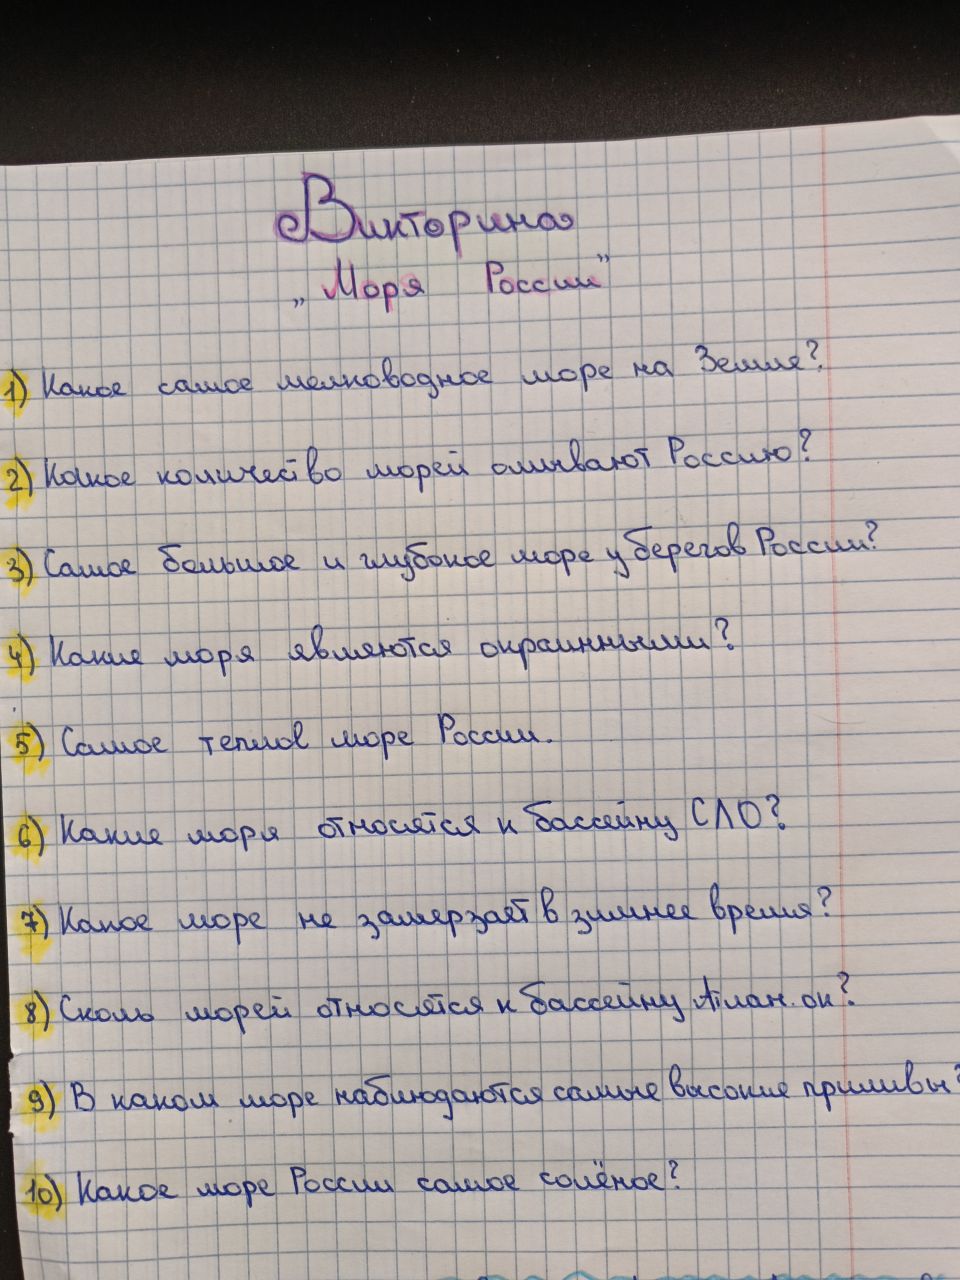 Викторина
„Моря России”
1) Какое самое мелководное море на Земле?
2) Какое количество морей омывают Россию?
3) Самое большое и глубокое море у берегов России?
4) Какие моря являются окраинными?
5) Самое теплое море России.
6) Какие моря относятся к бассейну СЛО?
7) Какое море не замерзает в зимнее время?
8) Сколь морей относятся к бассейну Атлан. ок?
9) В каком море наблюдаются самые высокие приливы?
10) Какое море России самое солёное?